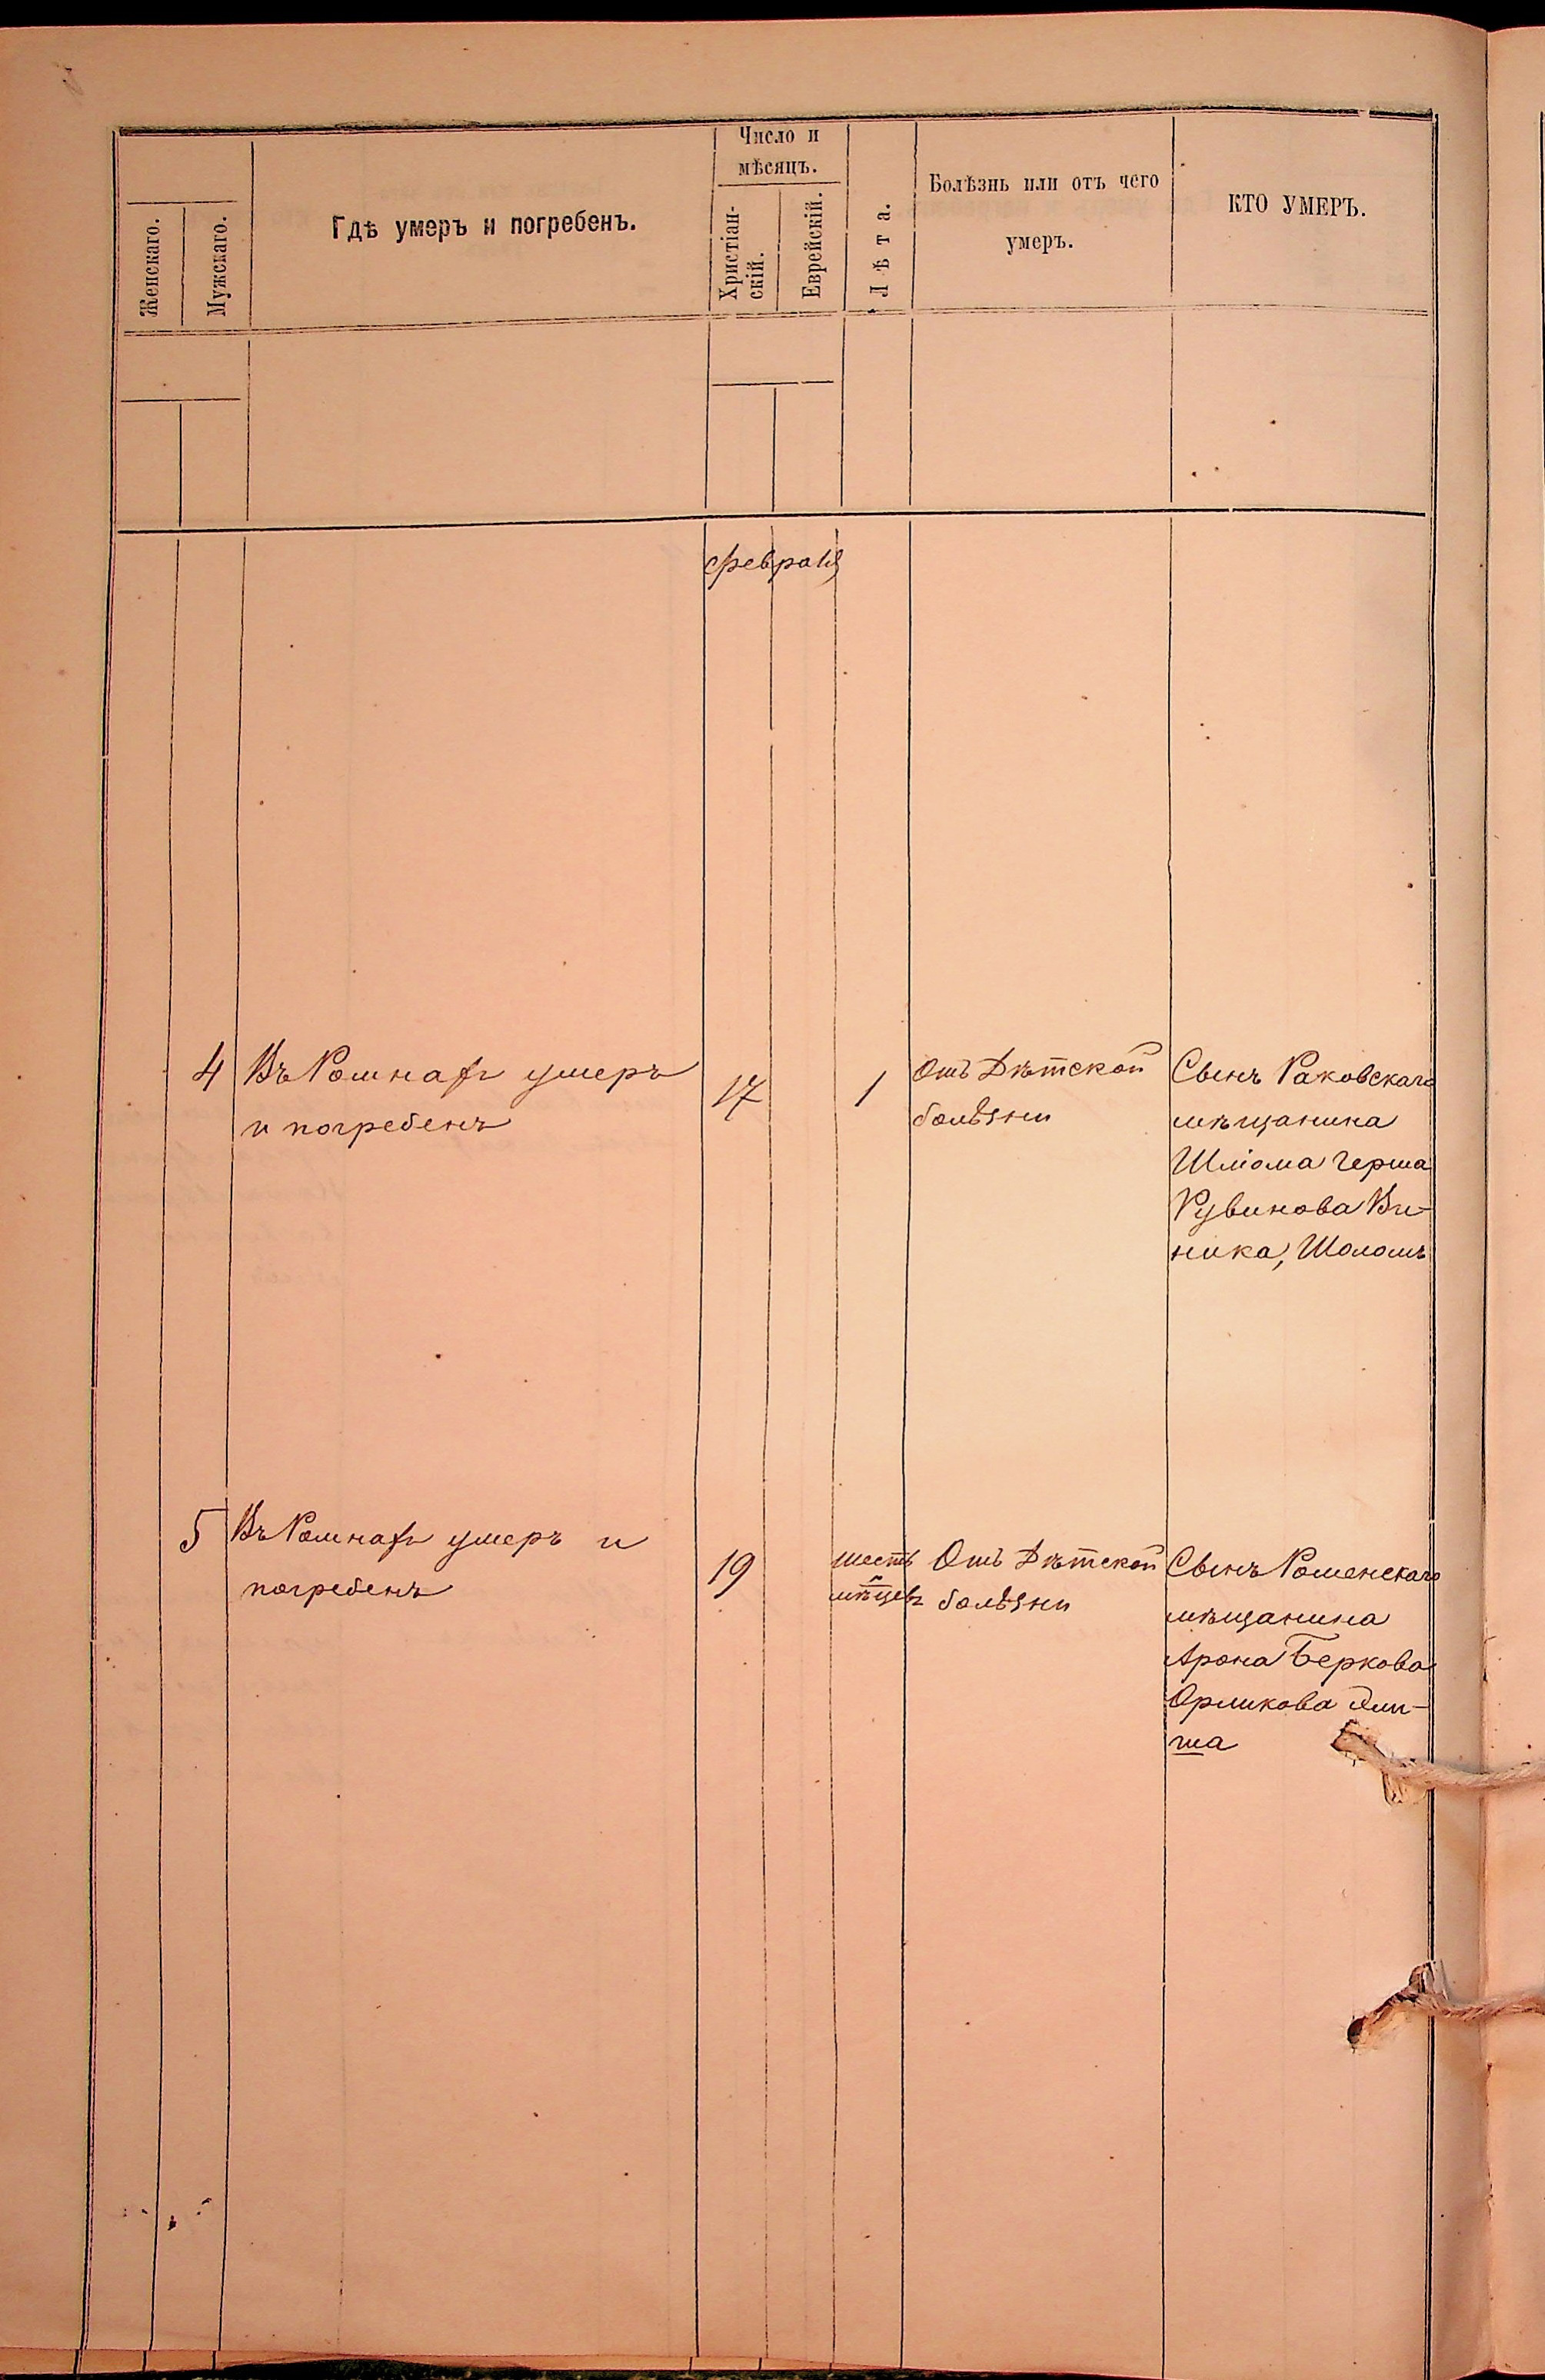 Число и
мѣсяцъ.
Женскаго.
Мужскаго.
Гдѣ умеръ и погребенъ.
Христіан-
скій.
Еврейскій.
Лѣта.
Болѣзнь или отъ чего
умеръ.
КТО УМЕРЪ.
февраля
4
Въ Ромнахъ умеръ
и погребенъ
17
1
Отъ Дѣтской
болѣзни
Сынъ Раковскаго
мѣщанина
Шліома Герша
Рувинова Ви-
ника, Шоломъ
5
Въ Ромнахъ умеръ и
погребенъ
19
шесть
мѣцевъ
Отъ Дѣтской
болѣзни
Сынъ Роменскаго
мѣщанина
Арона Беркова
Орликова